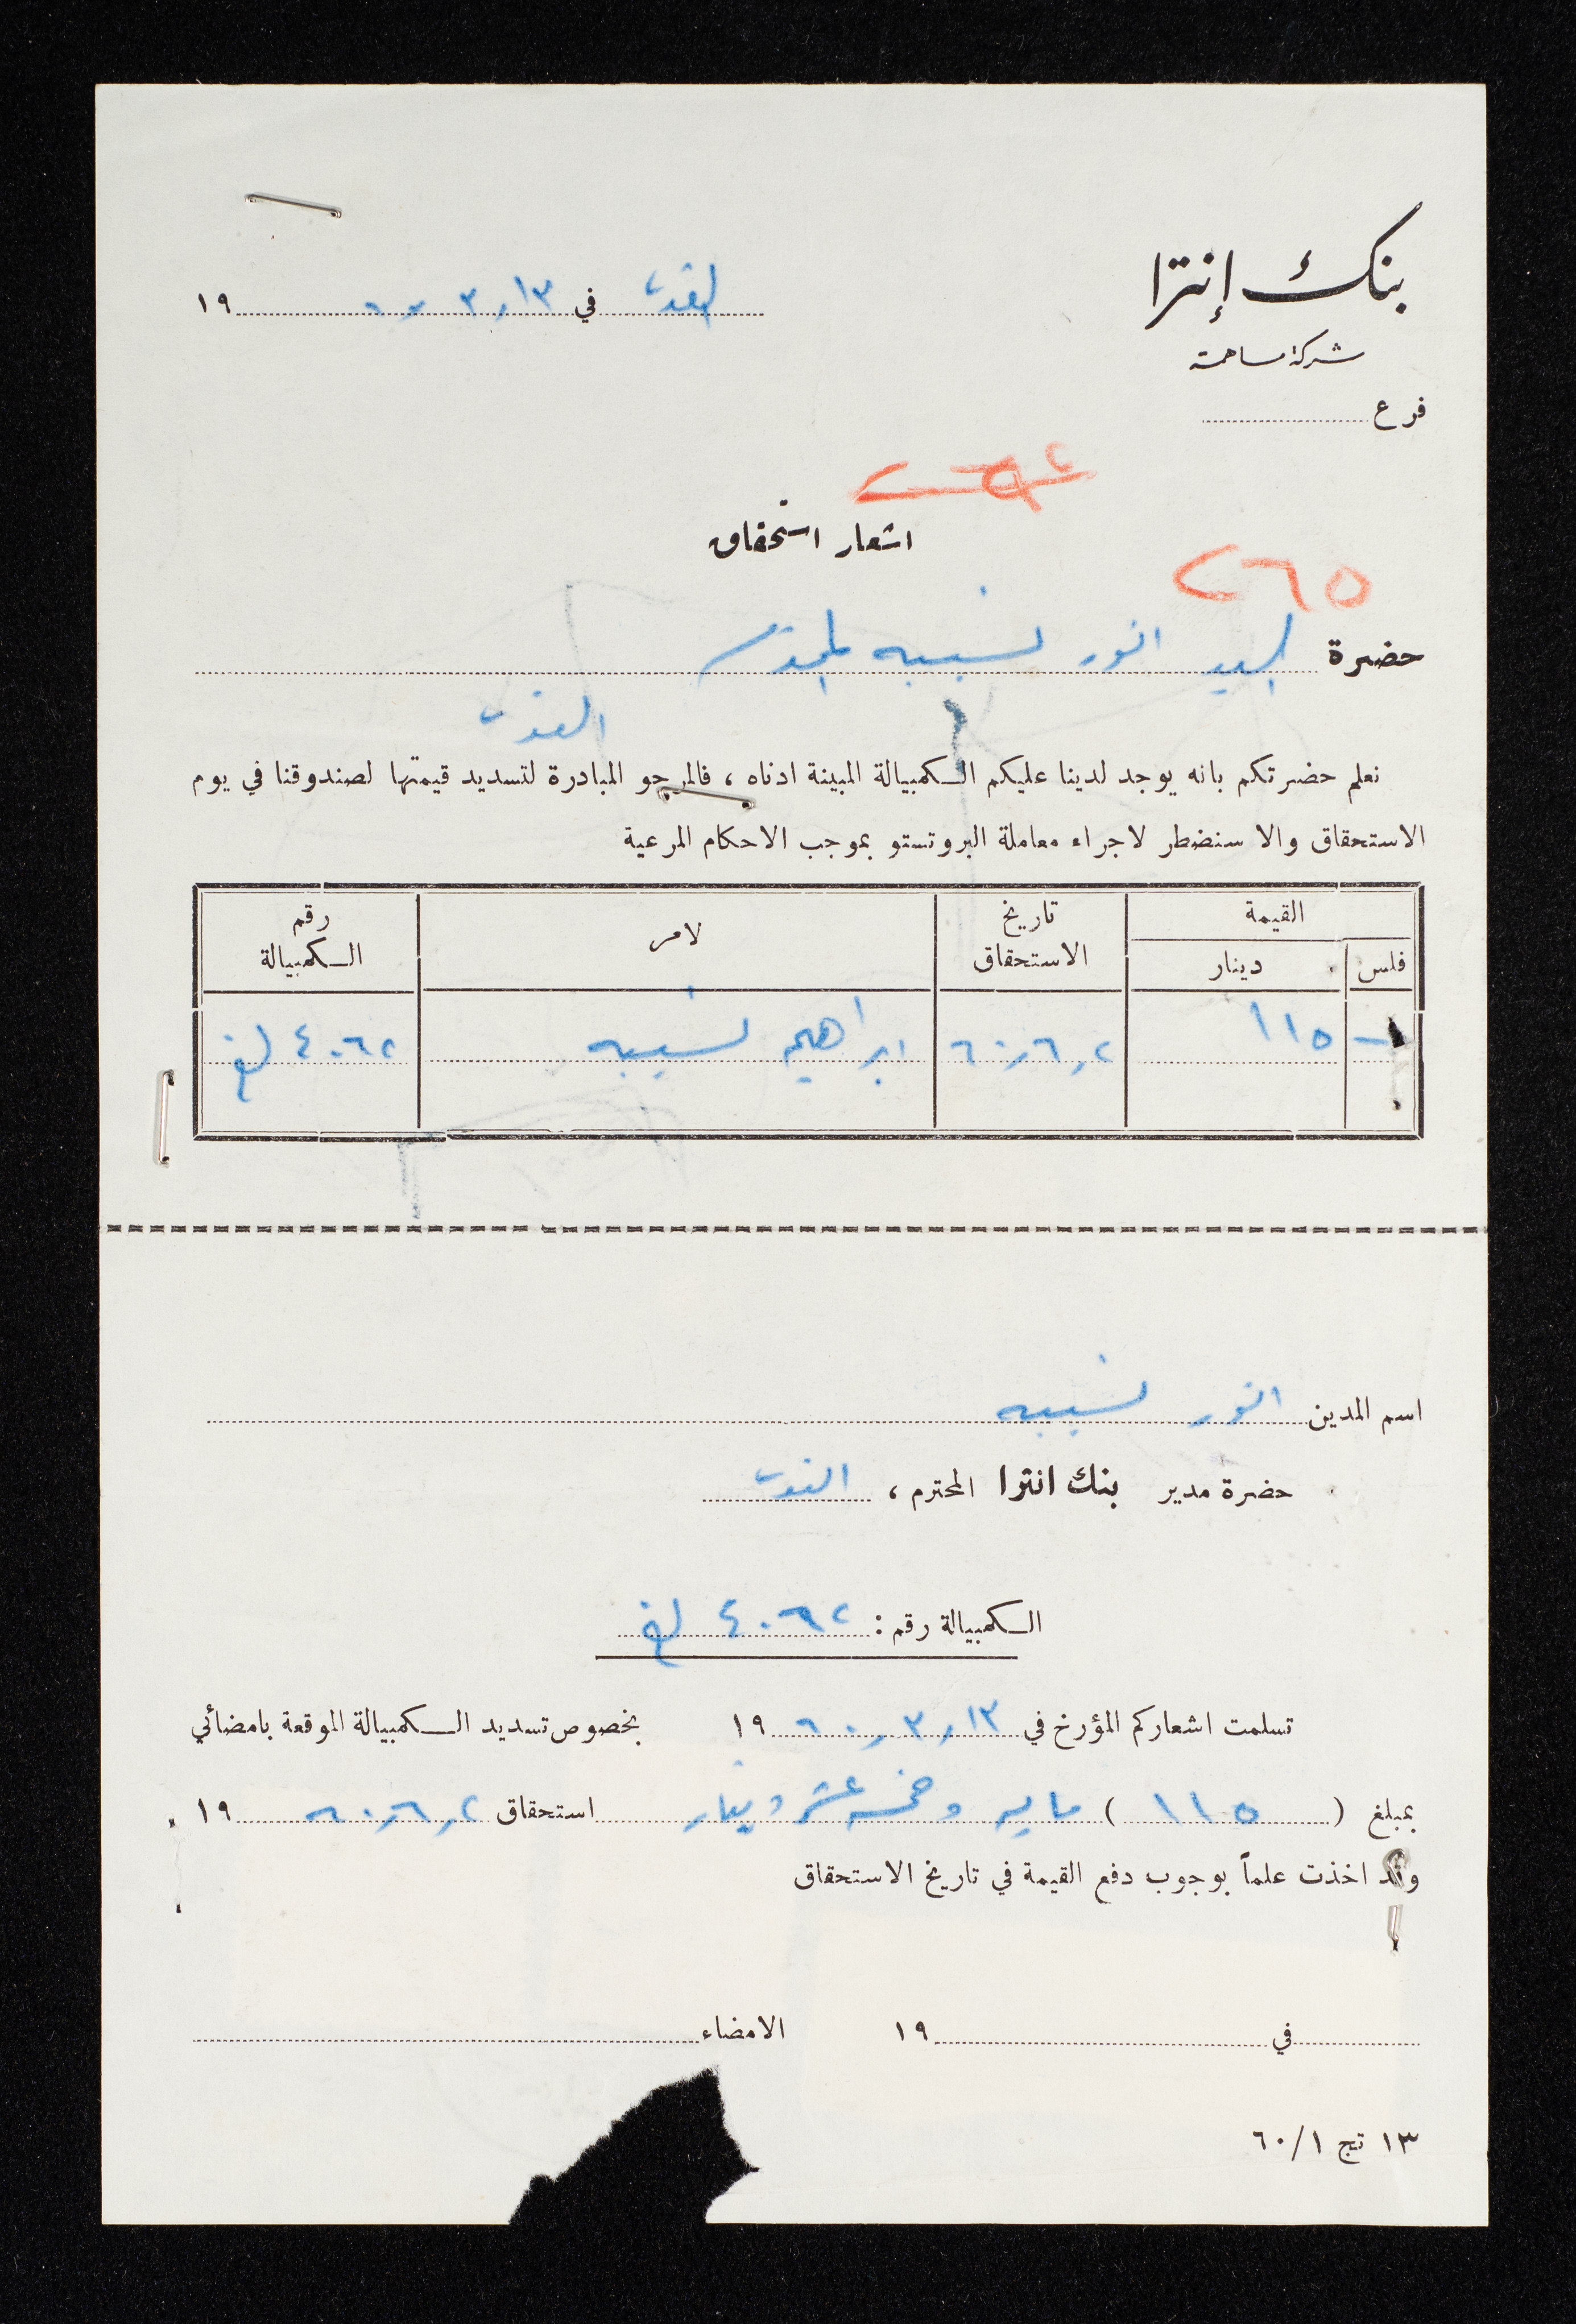 بنك إنترا
شركة مساهمة
فرع
القدس في ١٣ر٣ر٦٠ ١٩
٢٦٤
اشعار استحقاق
٢٦٥
حضرة السيد انور نسيبه المحترم
القدس
نعلم حضرتكم بانه يوجد لدينا عليكم الكمبيالة المبينة ادناه ، فالمرجو المبادرة لتسديد قيمتها لصندوقنا في يوم
الاستحقاق والا سنضطر لاجراء معاملة البروتستو بموجب الاحكام المرعية
القيمة تاريخ الاستحقاق لامر رقم الكمبيالة
فلس دينار
- ١١٥ ٢ر٦ر٦٠ ابراهيم نسيبه ٤٠٦٢ لغ
اسم المدين انور نسيبه
حضرة مدير بنك انترا المحترم ، القدس
الكمبيالة رقم : ٤٠٦٢ لغ
تسلمت اشعاركم المؤرخ في ١٣ر٣ر٦٠ ١٩ بخصوص تسديد الكمبيالة الموقعة بامضائي
بمبلغ ( ١١٥ ) مايه وخمسه عشر دينار استحقاق ٢ر٦ر٦٠ ١٩
وقد اخذت علماً بوجوب دفع القيمة في تاريخ الاستحقاق
في ١٩ الامضاء
١٣ تج ٦٠/١